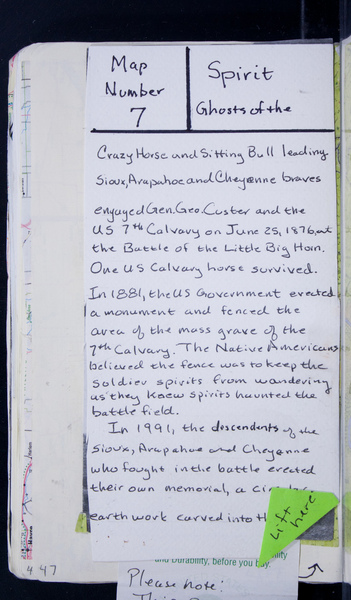 Map
Number
7
Spirit
Ghosts of the
Crazy Horse and Sitting Bull leading
Sioux, Arapahoe and Cheyenne braves
engaged Gen. Geo. Custer and the
US 7th Calvary on June 25, 1876, at
the Battle of the Little Big Horn.
One US Calvary horse survived.
In 1881, the US Government erected
a monument and fenced the
area of the mass grave of the
7th Calvary. The Native Americans
believed the fence was to keep the
soldier spirits from wandering
as they knew spirits haunted the
battle field.
In 1991, the descendents of the
Sioux, Arapahoe and Cheyenne
who fought in the battle erected
their own memorial, a
earthwork carved into
Lift here
and Durability, before you buy.
Please note:
447